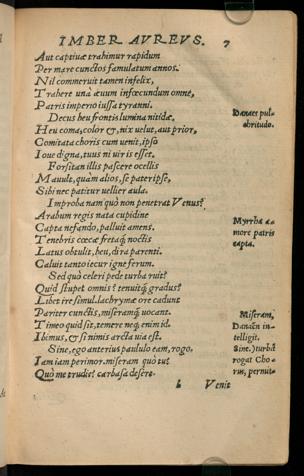 IMBER AVREVS. 7
Aut captiuæ trahimur rapidum
Per mare cunctos famulatum annos.
Nil commeruit tamen infelix,
Trahere vnà æuum infœcundum omne,
Patris imperio iussa tyranni.
Decus heu frontis lumina nitidæ,
Danaes pul-
Heu coma, color &, nix velut, aut prior,
chritudo.
Comitata choris cum venit, ipso
Ioue digna, tuus ni vir is esset.
Forsitan illis pascere ocellis
Mauult, quàm alios, se pater ipse,
Sibi nec patitur vellier aula.
Improba nam quò non penetrat Venus?
Arabum regis nata cupidine
Myrrha a-
Capta nefando, palluit amens.
more patris
Tenebris cœcæ fretaq́; noctis
capta.
Latus obtulit, heu, dira parenti.
Caluit tanto iecur igne ferum.
Sed quò celeri pede turba ruit?
Quid stupet omnis? tenuitq́; gradus?
Libet ire simul. lachrymæ ore cadunt
Pariter cunctis, miseramq́; vocant.
Miseram,
Timeo quid sit, temere neq; enim id.
Danaën in-
Ibimus, & si nimis arcta via est.
telligit.
Sine, ego anterius paululo eam, rogo.
Sine.) turbā
Iam iam perimor. miseram quò tu?
rogat Cho-
Quò me trudis? carbasa desere.
rus, permit-
b Venit